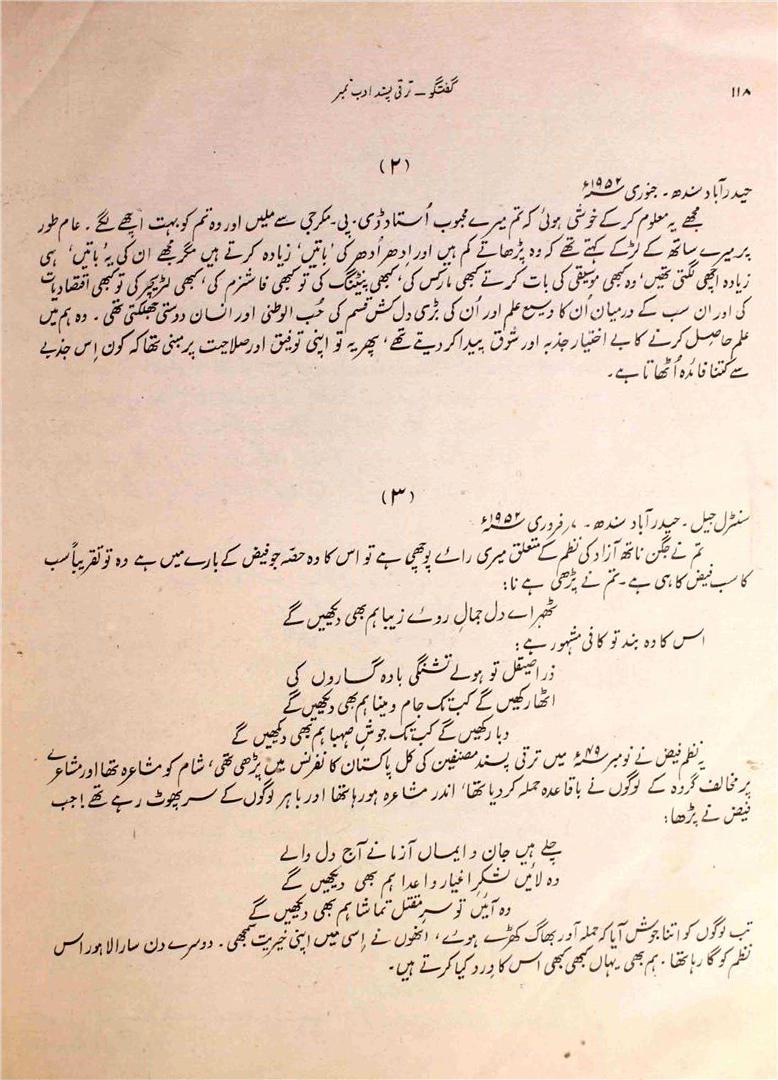 ۱۱۸
گفتگو ـ ترقی پسند ادب نمبر
(۲)
حیدرآباد سندھ ۔ جنوری ۱۹۵۲ء
مجھے یہ معلوم کرکے خوشی ہوئی کہ تم میرے محبوب اُستاد ڈی۔ پی۔ مکرجی سے ملیں اور وہ تم کو بہت اچھے لگے ۔ عام طور
پر میرے ساتھ کے لڑکے کہتے تھے کہ وہ پڑھاتے کم ہیں اور ادھر اُدھر کی 'باتیں' زیادہ کرتے ہیں مگر مجھے ان کی یہ 'باتیں' ہی
زیادہ اچھی لگتی تھیں، وہ کبھی موسیقی کی بات کرتے کبھی مارکس کی، کبھی پینٹنگ کی تو کبھی فاشزم کی، کبھی لٹریچر کی تو کبھی اقتصادیات
کی اور ان سب کے درمیان اُن کا وسیع علم اور اُن کی بڑی دل کش قسم کی حُب الوطنی اور انسان دوستی جھلکتی تھی ۔ وہ ہم میں
علم حاصل کرنے کا بے اختیار جذبہ اور شوق پیدا کر دیتے تھے، پھر یہ تو اپنی توفیق اور صلاحیت پر مبنی تھا کہ کون اِس جذبے
سے کتنا فائدہ اُٹھاتا ہے ۔
(۳)
سنٹرل جیل ۔ حیدرآباد سندھ ۔ ۷؍ فروری ۱۹۵۲ء
تم نے جگن ناتھ آزاد کی نظم کے متعلق میری رائے پوچھی ہے تو اس کا وہ حصّہ جو فیض کے بارے میں ہے وہ تو تقریباً سب
کا سب فیض کا ہی ہے ۔ تم نے پڑھی ہے نا:
ٹھہر اے دل جمالِ روئے زیبا ہم بھی دیکھیں گے
اس کا وہ بند تو کافی مشہور ہے:
ذرا صیقل تو ہولے تشنگی بادہ گساروں کی
اٹھا رکھیں گے کب تک جام و مینا ہم بھی دیکھیں گے
دبا رکھیں گے کب تک جوشِ صہبا ہم بھی دیکھیں گے
یہ نظم فیض نے نومبر ۴۹ء میں ترقی پسند مصنفین کی کل پاکستان کانفرنس میں پڑھی تھی، شام کو مشاعرہ تھا اور مشاعرے
پر مخالف گروہ کے لوگوں نے باقاعدہ حملہ کر دیا تھا، اندر مشاعرہ ہو رہا تھا اور باہر لوگوں کے سر پھوٹ رہے تھے! جب
فیض نے پڑھا:
چلے ہیں جان و ایماں آزمانے آج دل والے
وہ لائیں لشکرِ اغیار و اعدا ہم بھی دیکھیں گے
وہ آئیں تو سرِ مقتل تماشا ہم بھی دیکھیں گے
تب لوگوں کو اتنا جوش آیا کہ حملہ آور بھاگ کھڑے ہوئے، انھوں نے اِسی میں اپنی خیریت سمجھی ۔ دوسرے دن سارا لاہور اس
نظم کو گا رہا تھا ۔ ہم بھی یہاں کبھی کبھی اس کا وِرد کیا کرتے ہیں ۔